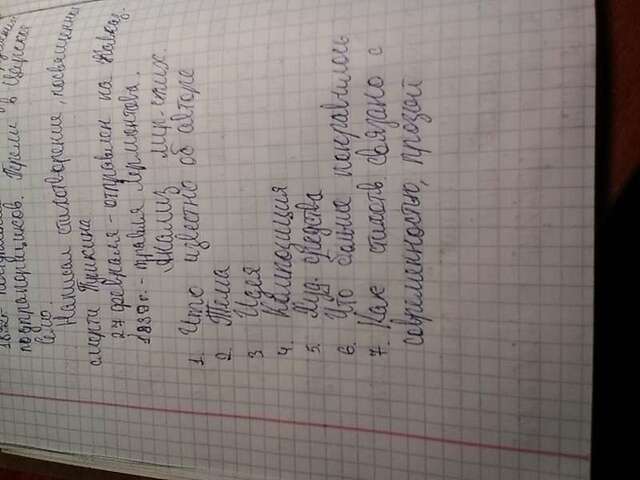 подпрапорщиков. Служил в Царско
село.
Написал стихотворение, посвященны
смерти Пушкина
27 февраля - отправлен на Кавказ.
1837г. - травля Лермонтова.
Анализ стих.
1. Что известно об авторе
2. Тема
3 Идея
4. Композиция
5. Худ. средства
6. Что больше понравилось
7. Как стих связано с
современностью, прозой